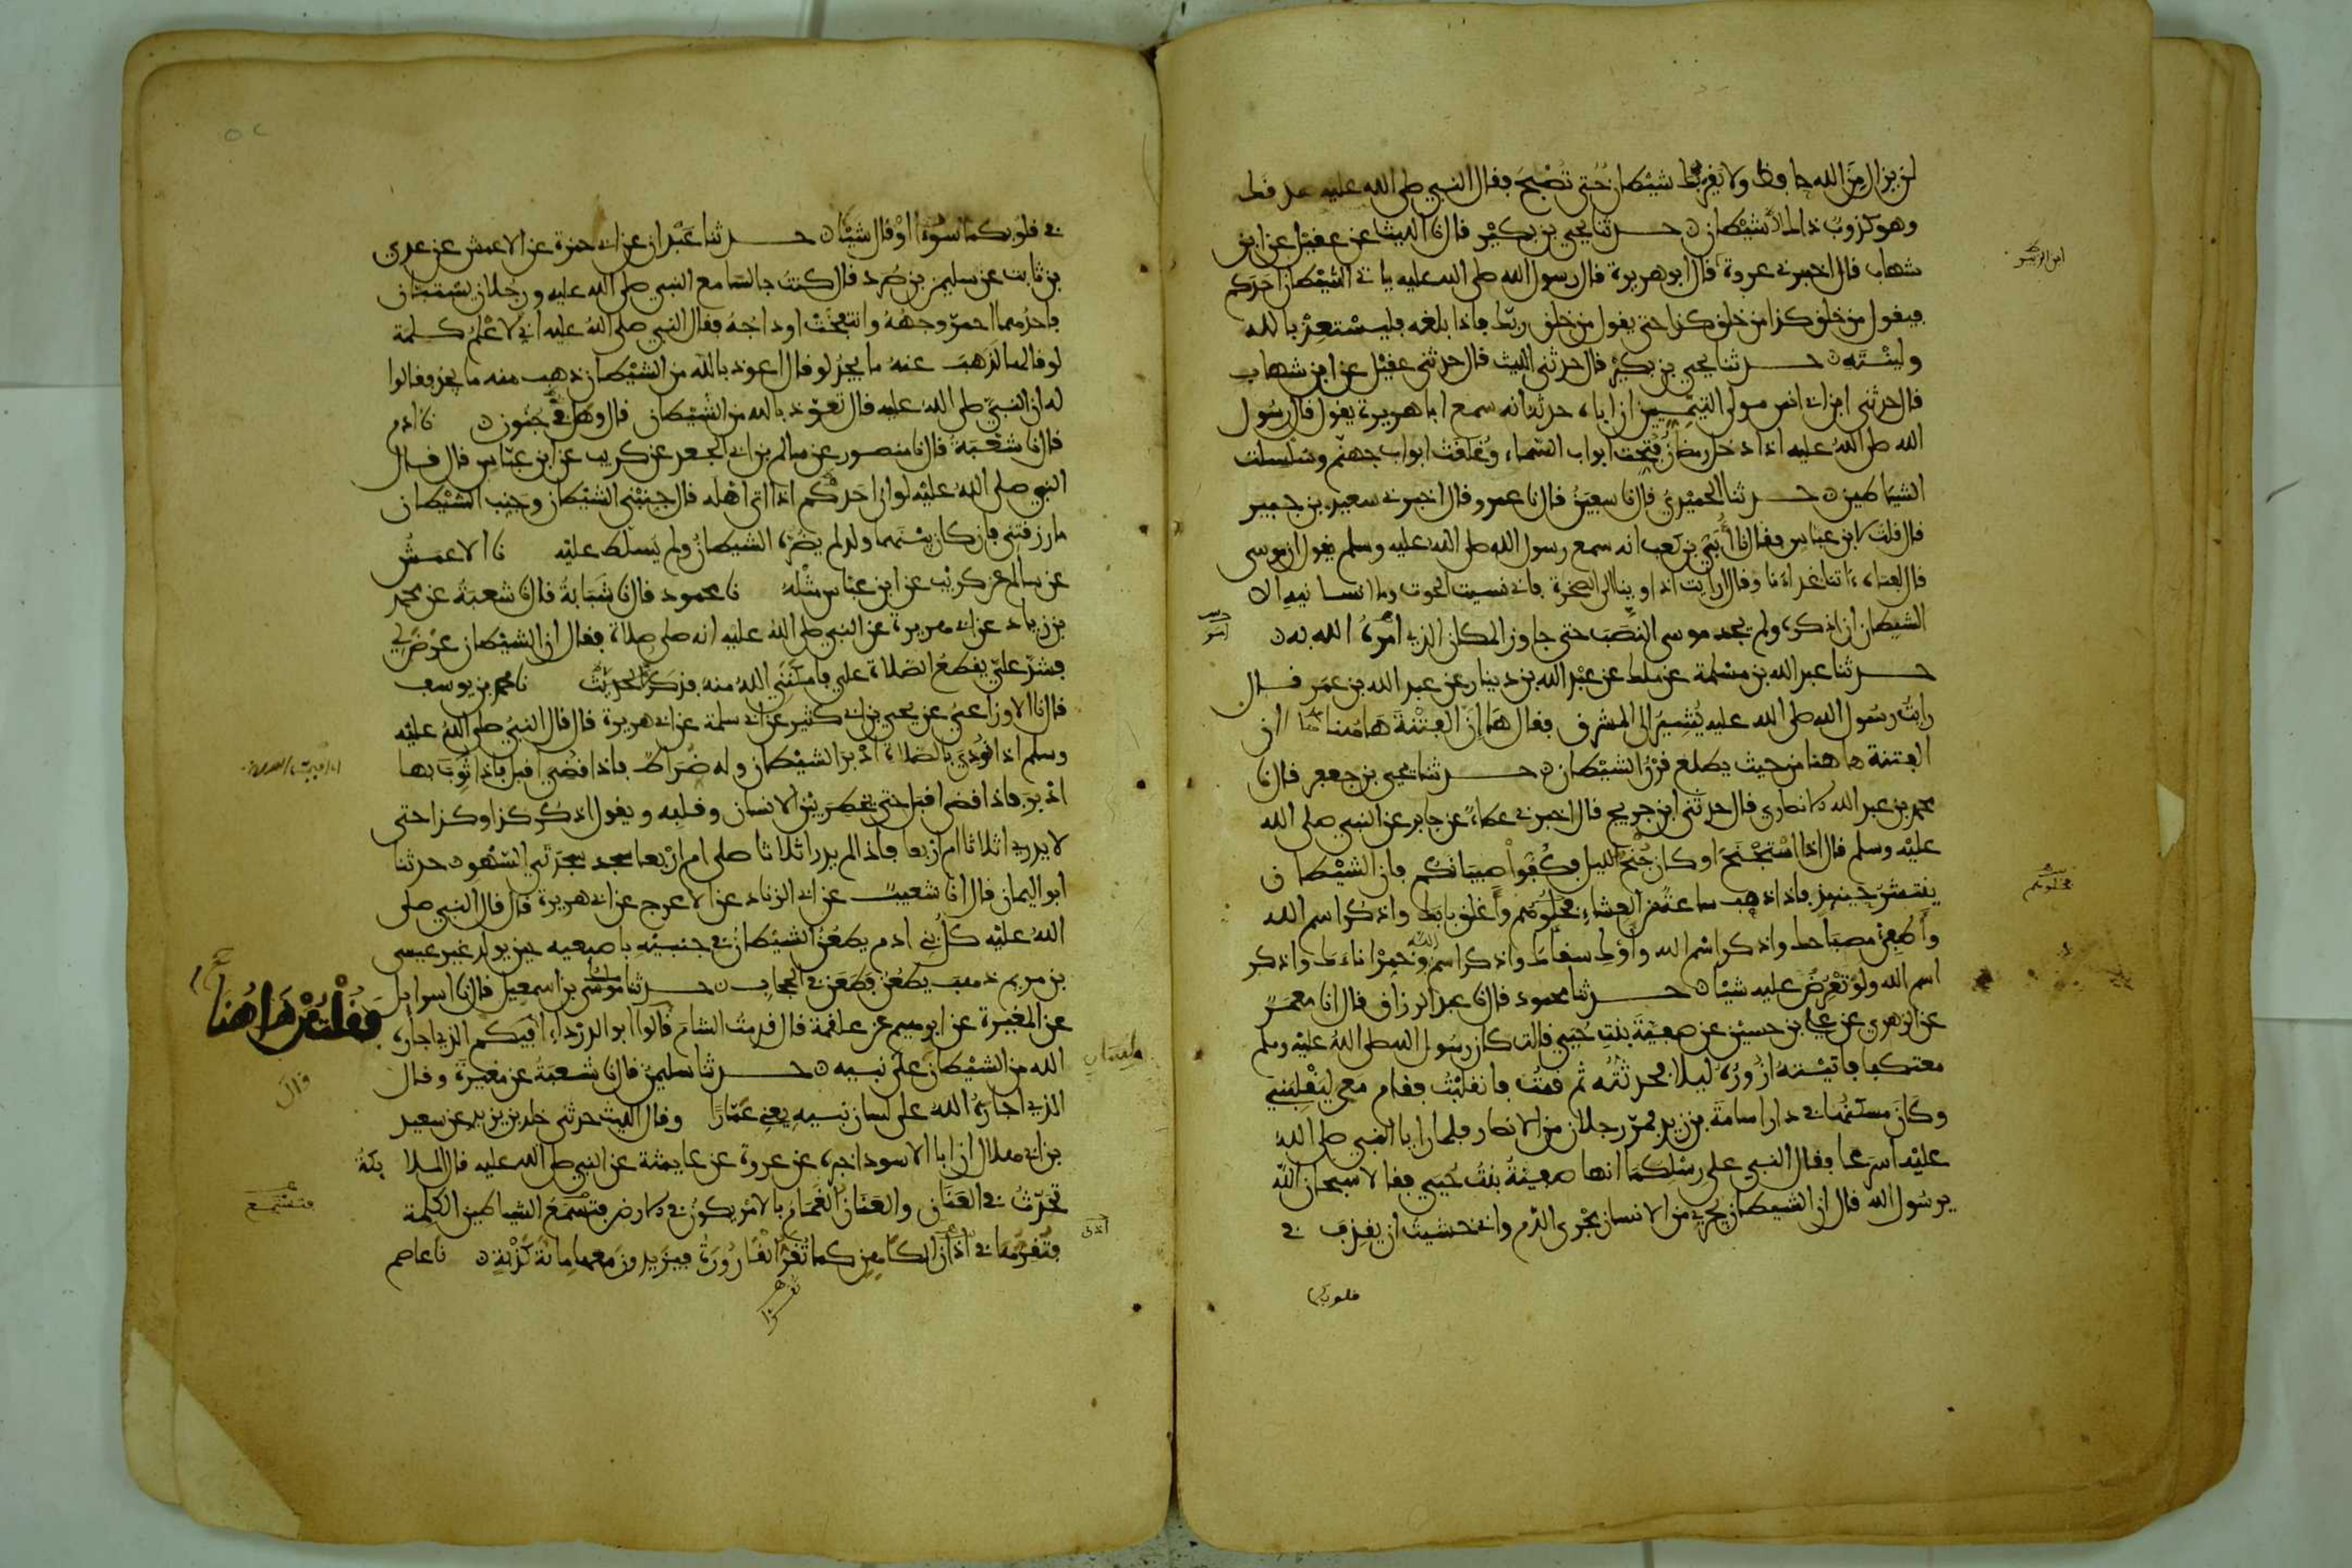 لن يزال من الله حافظ ولا يقربك شيطان حتى تصبح فقال النبي صلى الله عليه صدقك
وهو كذوب ذاك شيطان حـدثنا يحيى بن بكير قال نا الليث عن عقيل عن ابن
شهاب قال اخبرني عروة قال ابو هريرة قال رسول الله صلى الله عليه ياتي الشيطان احدكم
فيقول من خلق كذا من خلق كذا حتى يقول من خلق ربك فاذا بلغه فليستعذ بالله
ولينته حـدثنا يحيى بن بكير قال حدثني الليث قال حدثني عقيل عن ابن شهاب
قال حدثني ابن ابي انس مولى التيميين ان اباه حدثه انه سمع ابا هريرة يقول قال رسول
الله صلى الله عليه اذا دخل رمضان فتحت ابواب السماء وغلقت ابواب جهنم وسلسلت
الشياطين حـدثنا الحميدي قال نا سفين قال نا عمرو قال اخبرني سعيد بن جبير
قال قلت لابن عباس فقال نا أبي بن كعب انه سمع رسول الله صلى الله عليه وسلم يقول ان موسى
قال لفتاه ءاتنا غداءنا وقال ارايت اذ اوينا الى الصخرة فاني نسيت الحوت وما انسانيه الا
الشيطان ان اذكره ولم يجد موسى النصب حتى جاوز المكان الذي امره الله به
حـدثنا عبد الله بن مسلمة عن ملك عن عبد الله بن دينار عن عبد الله بن عمر قـال
رايت رسول الله صلى الله عليه يشير الى المشرق فقال ها إن الفتنة هاهنا ان
الفتنة هاهنا من حيث يطلع قرن الشيطان حـدثنا يحيى بن جعفر قال نا
محمد بن عبد الله الانصاري قال حدثني ابن جريج قال اخبرني عطاء عن جابر عن النبي صلى الله
عليه وسلم قال اذا استجنح او كان جنح الليل فكفوا صبيانكم فان الشيطان
ينتشر حينئذ فاذا ذهب ساعة من العشاء فحلوهم وأغلق بابك واذكر اسم الله
وأطفئ مصباحك واذكر اسم الله وأوك سقاءك واذكر اسم الله وخمر اناءك واذكر
اسم الله ولو تعرض عليه شيئا حـدثنا محمود قال نا عبد الرزاق قال انا معمر
عن الزهري عن علي بن حسين عن صفية بنت حيي قالت كان رسول الله صلى الله عليه وسلم
معتكفا فاتيته ازوره ليلا فحدثته ثم قمت فانقلبت فقام معي ليقلبني
وكان مسكنها في دار اسامة بن زيد فمر رجلان من الانصار فلما رايا النبي صلى الله
عليه اسرعا فقال النبي على رسلكما انها صفية بنت حيي فقالا سبحان الله
يرسول الله قال ان الشيطان يجري من الانسان مجرى الدم واني خشيت ان يقذف في
قلوبكما
ابن الزبير
فخلوهم
في قلوبكما سوءا او قال شيئا حـدثنا عبدان عن ابي حمزة عن الاعمش عن عدي
بن ثابت عن سليمن بن صرد قال كنت جالسا مع النبي صلى الله عليه ورجلان يستبان
فاحدهما احمر وجهه وانتفخت اوداجه فقال النبي صلى الله عليه اني لاعلم كلمة
لو قالها لذهب عنه ما يجد لو قال اعوذ بالله من الشيطان ذهب منه ما يجد فقالوا
له ان النبي صلى الله عليه قال تعوذ بالله من الشيطان قال وهل بي جنون نا ادم
قال نا شعبة قال نا منصور عن سالم بن ابي الجعد عن كريب عن ابن عباس قال قـال
النبي صلى الله عليه لو ان احدكم اذا اتى اهله قال جنبني الشيطان وجنب الشيطان
ما رزقتني فان كان بينهما ولد لم يضره الشيطان ولم يسلط عليه نا الاعمش
عن سالم عن كريب عن ابن عباس مثله نا محمود قال نا شبابة قال نا شعبة عن محمد
بن زياد عن ابي هريرة عن النبي صلى الله عليه انه صلى صلاة فقال ان الشيطان عرض لي
فشد علي يقطع الصلاة علي فامكنني الله منه فذكر الحديث نا محمد بن يوسف
قال نا الاوزاعي عن يحيى بن ابي كثير عن ابي سلمة عن ابي هريرة قال قال النبي صلى الله عليه
وسلم اذا نودي بالصلاة ادبر الشيطان وله ضراط فاذا قضي اقبل فاذا ثوب بها
ادبر فاذا قضي اقبل حتى يخطر بين الانسان وقلبه ويقول اذكر كذا وكذا حتى
لا يدري اثلاثا ام اربعا فاذا لم يدر اثلاثا صلى ام اربعا سجد سجدتي السهو حدثنا
ابو اليمان قال انا شعيب عن ابي الزناد عن الاعرج عن ابي هريرة قال قال النبي صلى
الله عليه كل بني ادم يطعن الشيطان في جنبيه باصبعيه حين يولد غير عيسى
بن مريم ذهب يطعن فطعن في الحجاب حـدثنا ملك بن اسمعيل قال نا اسرايل
عن المغيرة عن ابرهيم عن علقمة قال قدمت الشام قالوا ابو الدرداء افيكم الذي اجاره
الله من الشيطان على نبيه حـدثنا سليمن قال نا شعبة عن مغيرة وقال
الذي اجاره الله على لسان نبيه يعني عمارا وقال الليث حدثني خلد بن يزيد عن سعيد
بن ابي هلال ان ابا الاسود اخبره عن عروة عن عايشة عن النبي صلى الله عليه قال الملائكة
تحدث في العنان والعنان الغمام بالامر يكون في الارض فتسمع الشياطين الكلمة
فتقرها في اذان الكاهن كما تقر القارورة فيزيدون معها مائة كذبة نا عاصم
فقلت من هاهنا
قال
فتستمع
لسان